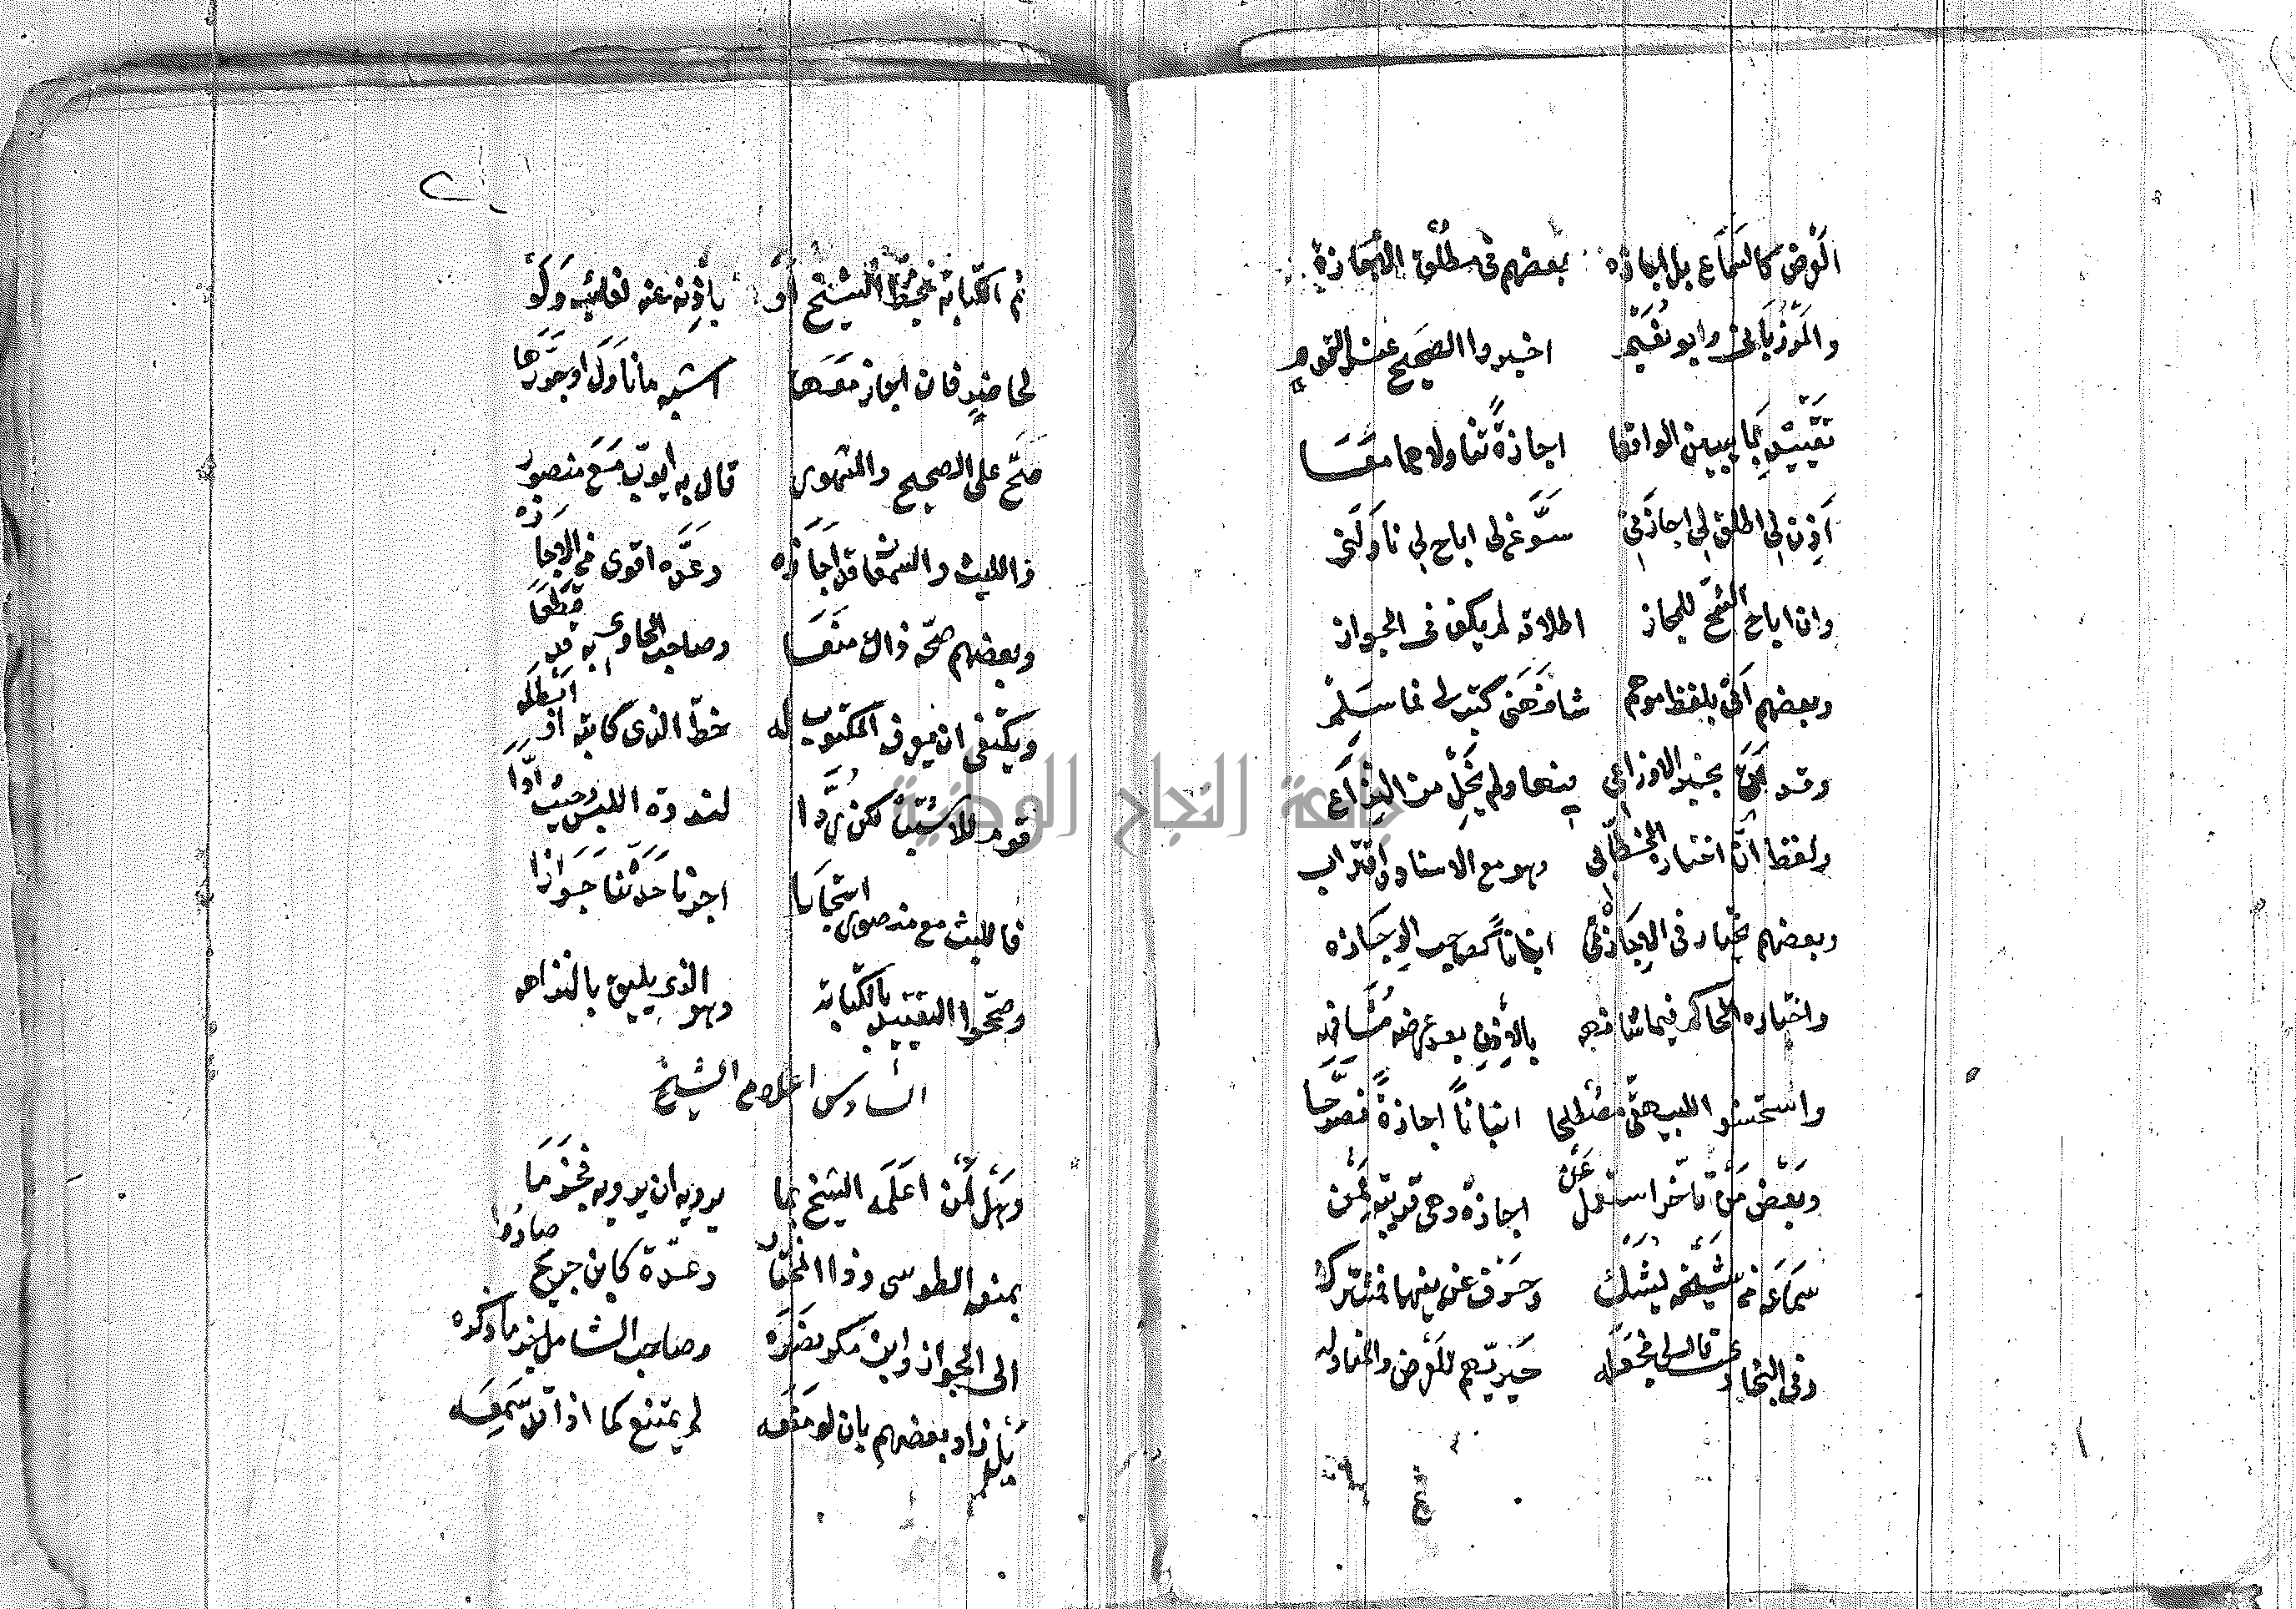 العرض كالسماع بل اجازه بعضهم في مطلق الاجازة
والمرزباني وابو نعيم اخبر والصحيح عند القوم
تقييده بما يبين الواقعا اجازة تناولا هما معا
اذن لي اطلق لي اجازني سوغ لي اباح لي ناولني
وان اباح الشيخ للمجاز اطلاقه لم يكف في الجواز
وبعضهم اتى بلفظ موهم شافهني كتب لي فما سلم
وقد اتى بخبر الاوزاعي فيها ولم يخل من النزاع
ولفظ ان اختاره الخطابي وهو مع الاسناد ذو اقتراب
وبعضهم يختار في الاجازة انبانا كصاحب الوجازه
واختاره الحاكم فيما شافهه بالاذن بعد عرضه مشافهه
واستحسنوا للبيهقي مصطلحا انبانا اجازة فصرحا
وبعض من تاخر استعمل عن اجازة وهي قريبة لمن
سماعه من شيخه يشك وحرف عن بينهما فمشترك
وفي البخاري قال لي فجعله حيريهم للعرض والمناوله
ثم الكتابة بخط الشيخ او باذنه عنه لغائب ولو
لحاضر فان اجاز معها اشبه ما ناول او جردها
صح على الصحيح والمشهور قال به ايوب مع منصور
والليث والسمعان قد اجازه وعده اقوى من الاجازه
وبعضهم صحة ذاك منعا وصاحب الحاوي به قد قطعا
ويكتفى ان يعرف المكتوب له خط الذي كاتبه وابطله
قوم للاشتباه لكن ردا لندرة اللبس وحيث ادا
فالليث مع منصور استجازا اخبرنا حدثنا جوازا
وصححوا التقييد بالكتابة وهو الذي يليق بالنزاهه
السادس اعلام الشيخ
وهل لمن اعلمه الشيخ بما يرويه ان يرويه فجزما
بمنعه الطوسي وذا المختار وعدة كابن جريج صاروا
الى الجواز وابن بكر نصره وصاحب الشامل جزما ذكره
بل زاد بعضهم بان لو منعه لم يمتنع كما اذا قد سمعه
جامعة النجاح الوطنية